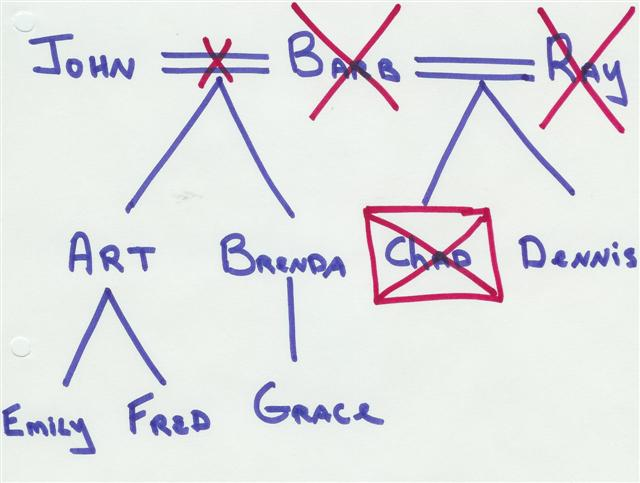 JOHN BARB RAY
ART BRENDA CHAD DENNIS
EMILY FRED GRACE